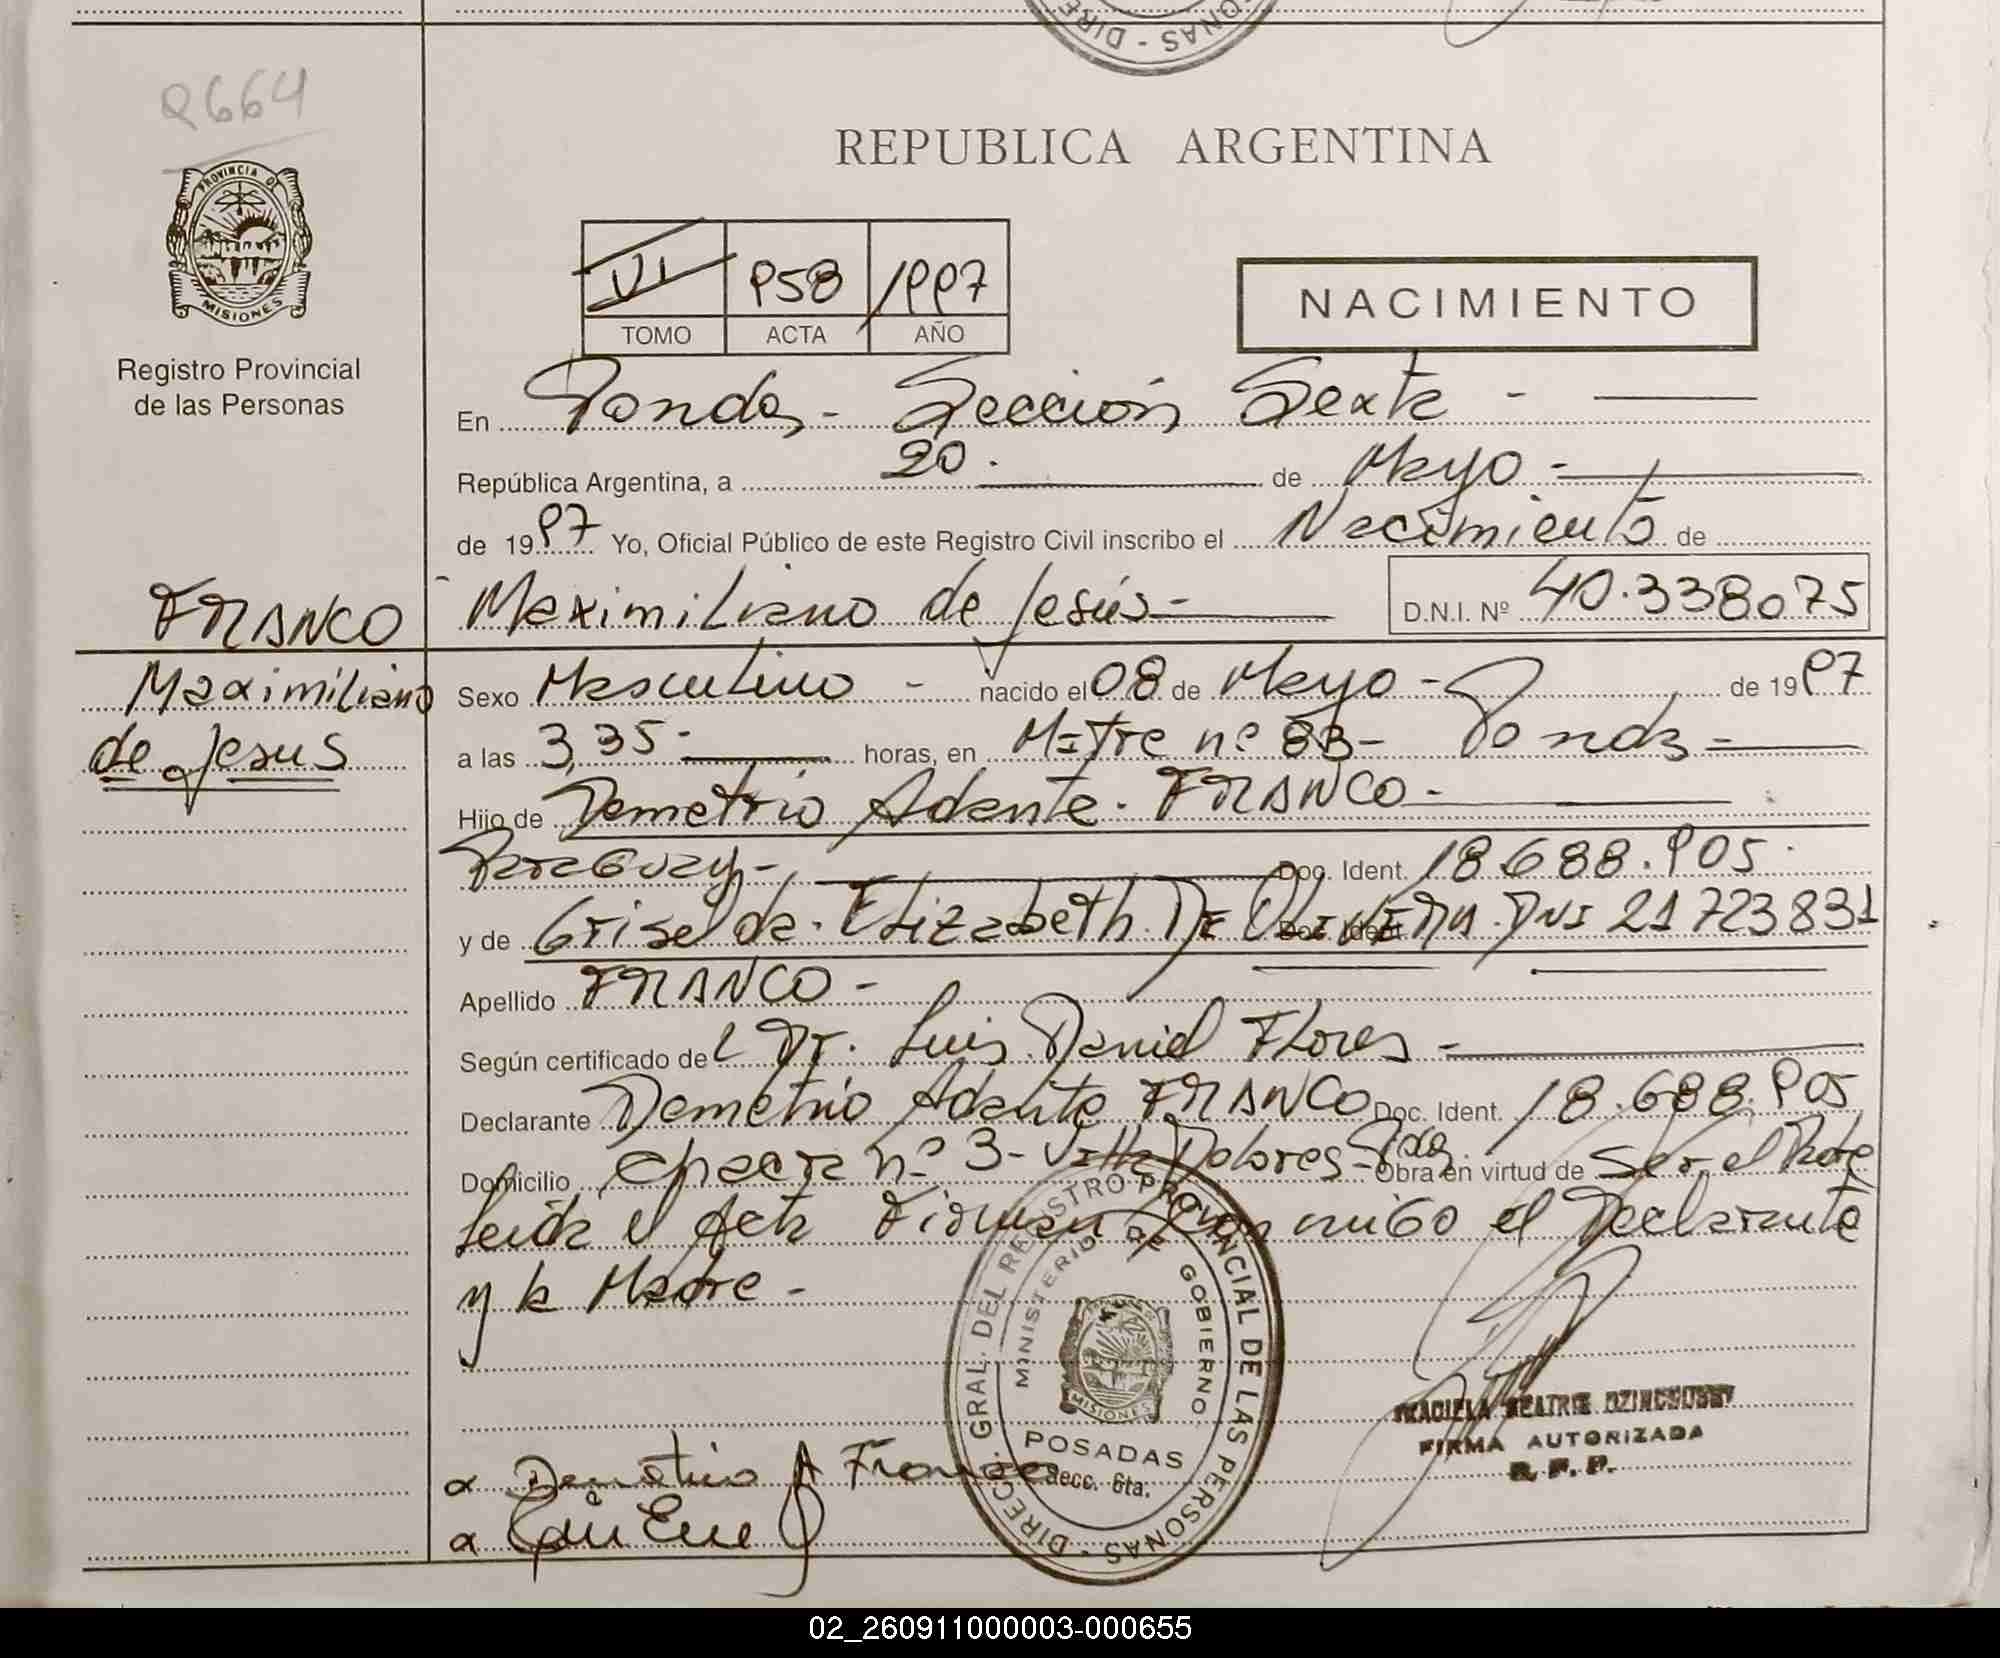 ONAS - DIRE
2664
PROVINCIA DE
MISIONES
Registro Provincial
de las Personas
REPUBLICA ARGENTINA
VI 958 1997
TOMO ACTA AÑO
NACIMIENTO
En Posadas - Sección Sexta -
República Argentina, a 20. de Mayo -
de 1997 Yo, Oficial Público de este Registro Civil inscribo el Nacimiento de
FRANCO
Maximiliano de Jesús - D.N.I. Nº 40.338075
Maximiliano
de Jesus
Sexo Masculino - nacido el 08 de Mayo - de 1997
a las 3,35 - horas, en Mitre nº 83 - Posadas -
Hijo de Demetrio Adante. FRANCO -
Paraguay - Doc. Ident. 18.688.905.
y de Griselda. Elizabeth. DE OLIVERA. DNI 21723831
Apellido FRANCO -
Según certificado del Dr. Luis Daniel Flores -
Declarante Demetrio Adante FRANCO Doc. Ident. 18.688.905
Domicilio chacra nº 3 - Villa Dolores - Pdas. Obra en virtud de Ser el Padre
Leída el Acta Firman conmigo el Declarante
y la Madre -
DIRECC. GRAL. DEL REGISTRO PROVINCIAL DE LAS PERSONAS -
MINISTERIO DE GOBIERNO
MISIONES
POSADAS
Secc. 6ta.
BEATRIZ
FIRMA AUTORIZADA
R. P. P.
x Demetrio A Franco
x
02_260911000003-000655